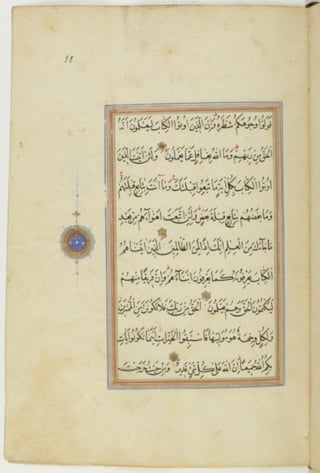 ١١
فَوَلُّوا وُجُوهَكُمْ شَطْرَهُ وَإِنَّ الَّذِينَ أُوتُوا الْكِتَابَ لَيَعْلَمُونَ أَنَّهُ
الْحَقُّ مِنْ رَبِّهِمْ وَمَا اللَّهُ بِغَافِلٍ عَمَّا يَعْمَلُونَ وَلَئِنْ أَتَيْتَ الَّذِينَ
أُوتُوا الْكِتَابَ بِكُلِّ آيَةٍ مَا تَبِعُوا قِبْلَتَكَ وَمَا أَنْتَ بِتَابِعٍ قِبْلَتَهُمْ
وَمَا بَعْضُهُمْ بِتَابِعٍ قِبْلَةَ بَعْضٍ وَلَئِنِ اتَّبَعْتَ أَهْوَاءَهُمْ مِنْ بَعْدِ
مَا جَاءَكَ مِنَ الْعِلْمِ إِنَّكَ إِذًا لَمِنَ الظَّالِمِينَ الَّذِينَ آتَيْنَاهُمُ
الْكِتَابَ يَعْرِفُونَهُ كَمَا يَعْرِفُونَ أَبْنَاءَهُمْ وَإِنَّ فَرِيقًا مِنْهُمْ
لَيَكْتُمُونَ الْحَقَّ وَهُمْ يَعْلَمُونَ الْحَقُّ مِنْ رَبِّكَ فَلَا تَكُونَنَّ مِنَ الْمُمْتَرِينَ
وَلِكُلٍّ وِجْهَةٌ هُوَ مُوَلِّيهَا فَاسْتَبِقُوا الْخَيْرَاتِ أَيْنَمَا تَكُونُوا يَأْتِ
بِكُمُ اللَّهُ جَمِيعًا إِنَّ اللَّهَ عَلَى كُلِّ شَيْءٍ قَدِيرٌ وَمِنْ حَيْثُ خَرَجْتَ